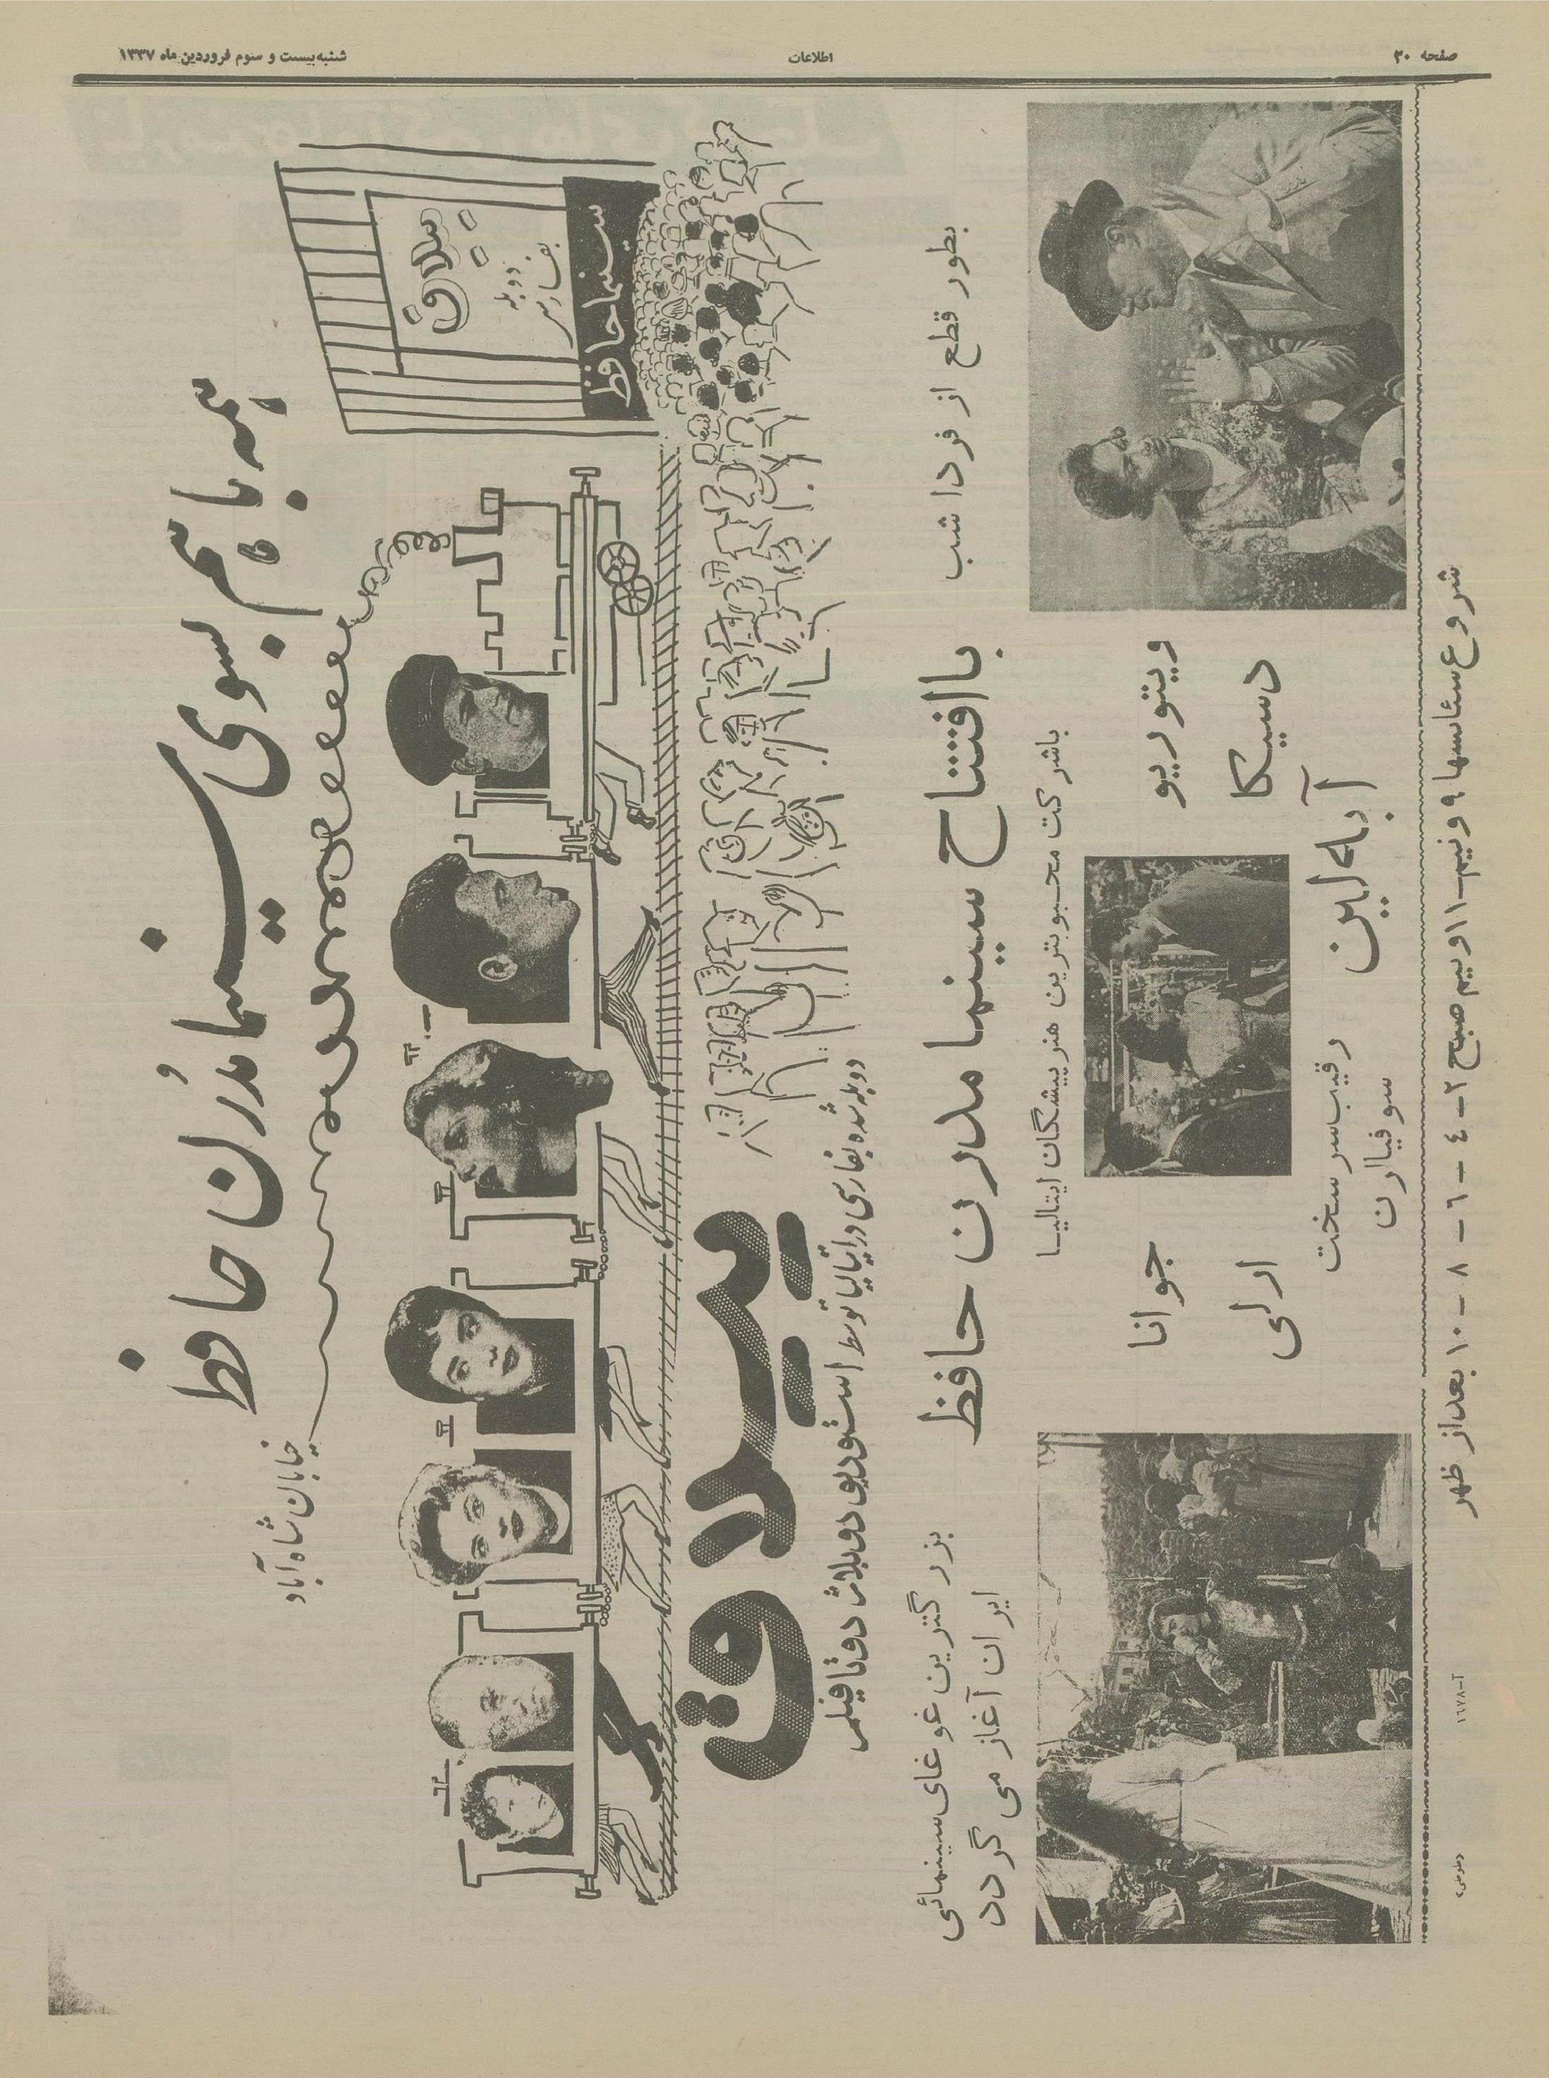 صفحه ۲۰
اطلاعات
شنبه بیست و سوم فروردین ماه ۱۳۳۷
همه با هم بسوی سینما مدرن حافظ
خیابان شاه آباد
ییلاق
دوبله
بفارسی
سینما حافظ
ییلاق
دوبله شده بفارسی در ایتالیا توسط استودیو دوبلاژ دونا فیلم
بطور قطع از فردا شب
با افتتاح سینما مدرن حافظ
بزرگترین غوغای سینمائی
ایران آغاز می گردد
باشرکت محبوبترین هنرپیشگان ایتالیا
ویتوریو
دسیکا
آبه لین
جوانا
رالی
رقیب سرسخت
سوفیا لرن
شروع سئانسها ۹ و نیم - ۱۱ و نیم صبح ۲ - ۴ - ۶ - ۸ - ۱۰ بعد از ظهر
آ-۱۶۷۸